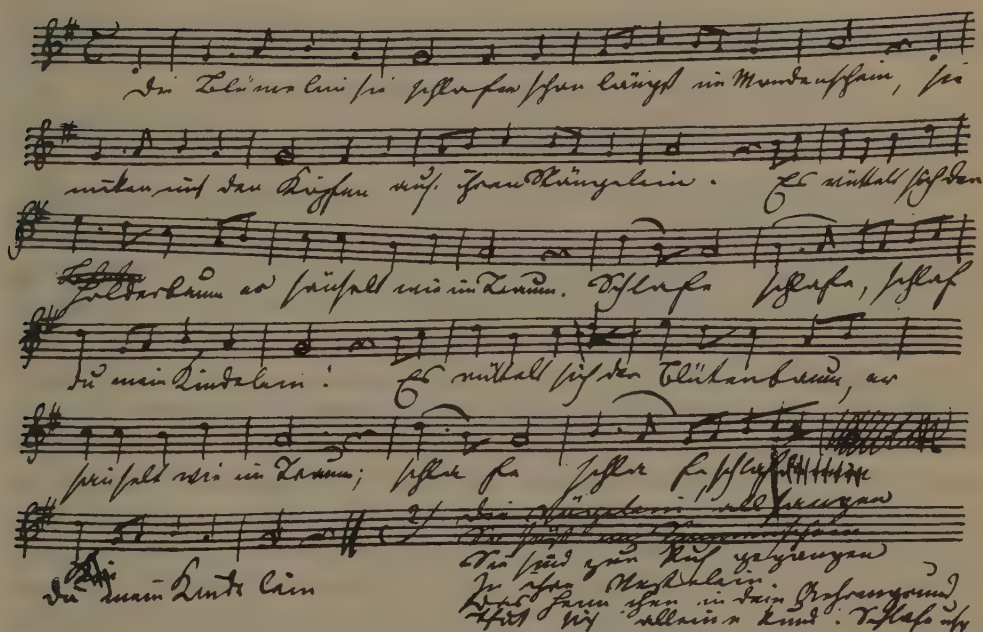 Die Blümelein sie schlafen schon längst im Mondenschein, sie
nicken mit den Köpfen auf ihren Stängelein. Es rüttelt sich der
Holderbaum er säuselt wie im Traum. Schlafe schlafe, schlaf
du mein Kindelein! Es rüttelt sich der Blütenbaum, er
säuselt wie im Traum; schla fe schla fe schlaf
du mein Kinde lein
2) die Vögelein all sangen
So süß im Sonnenschein
Sie sind zur Ruh gegangen
In ihre Nestelein
Das Heim chen in dem Ährengrund
Thut sich alleine kund. Schlafe usw